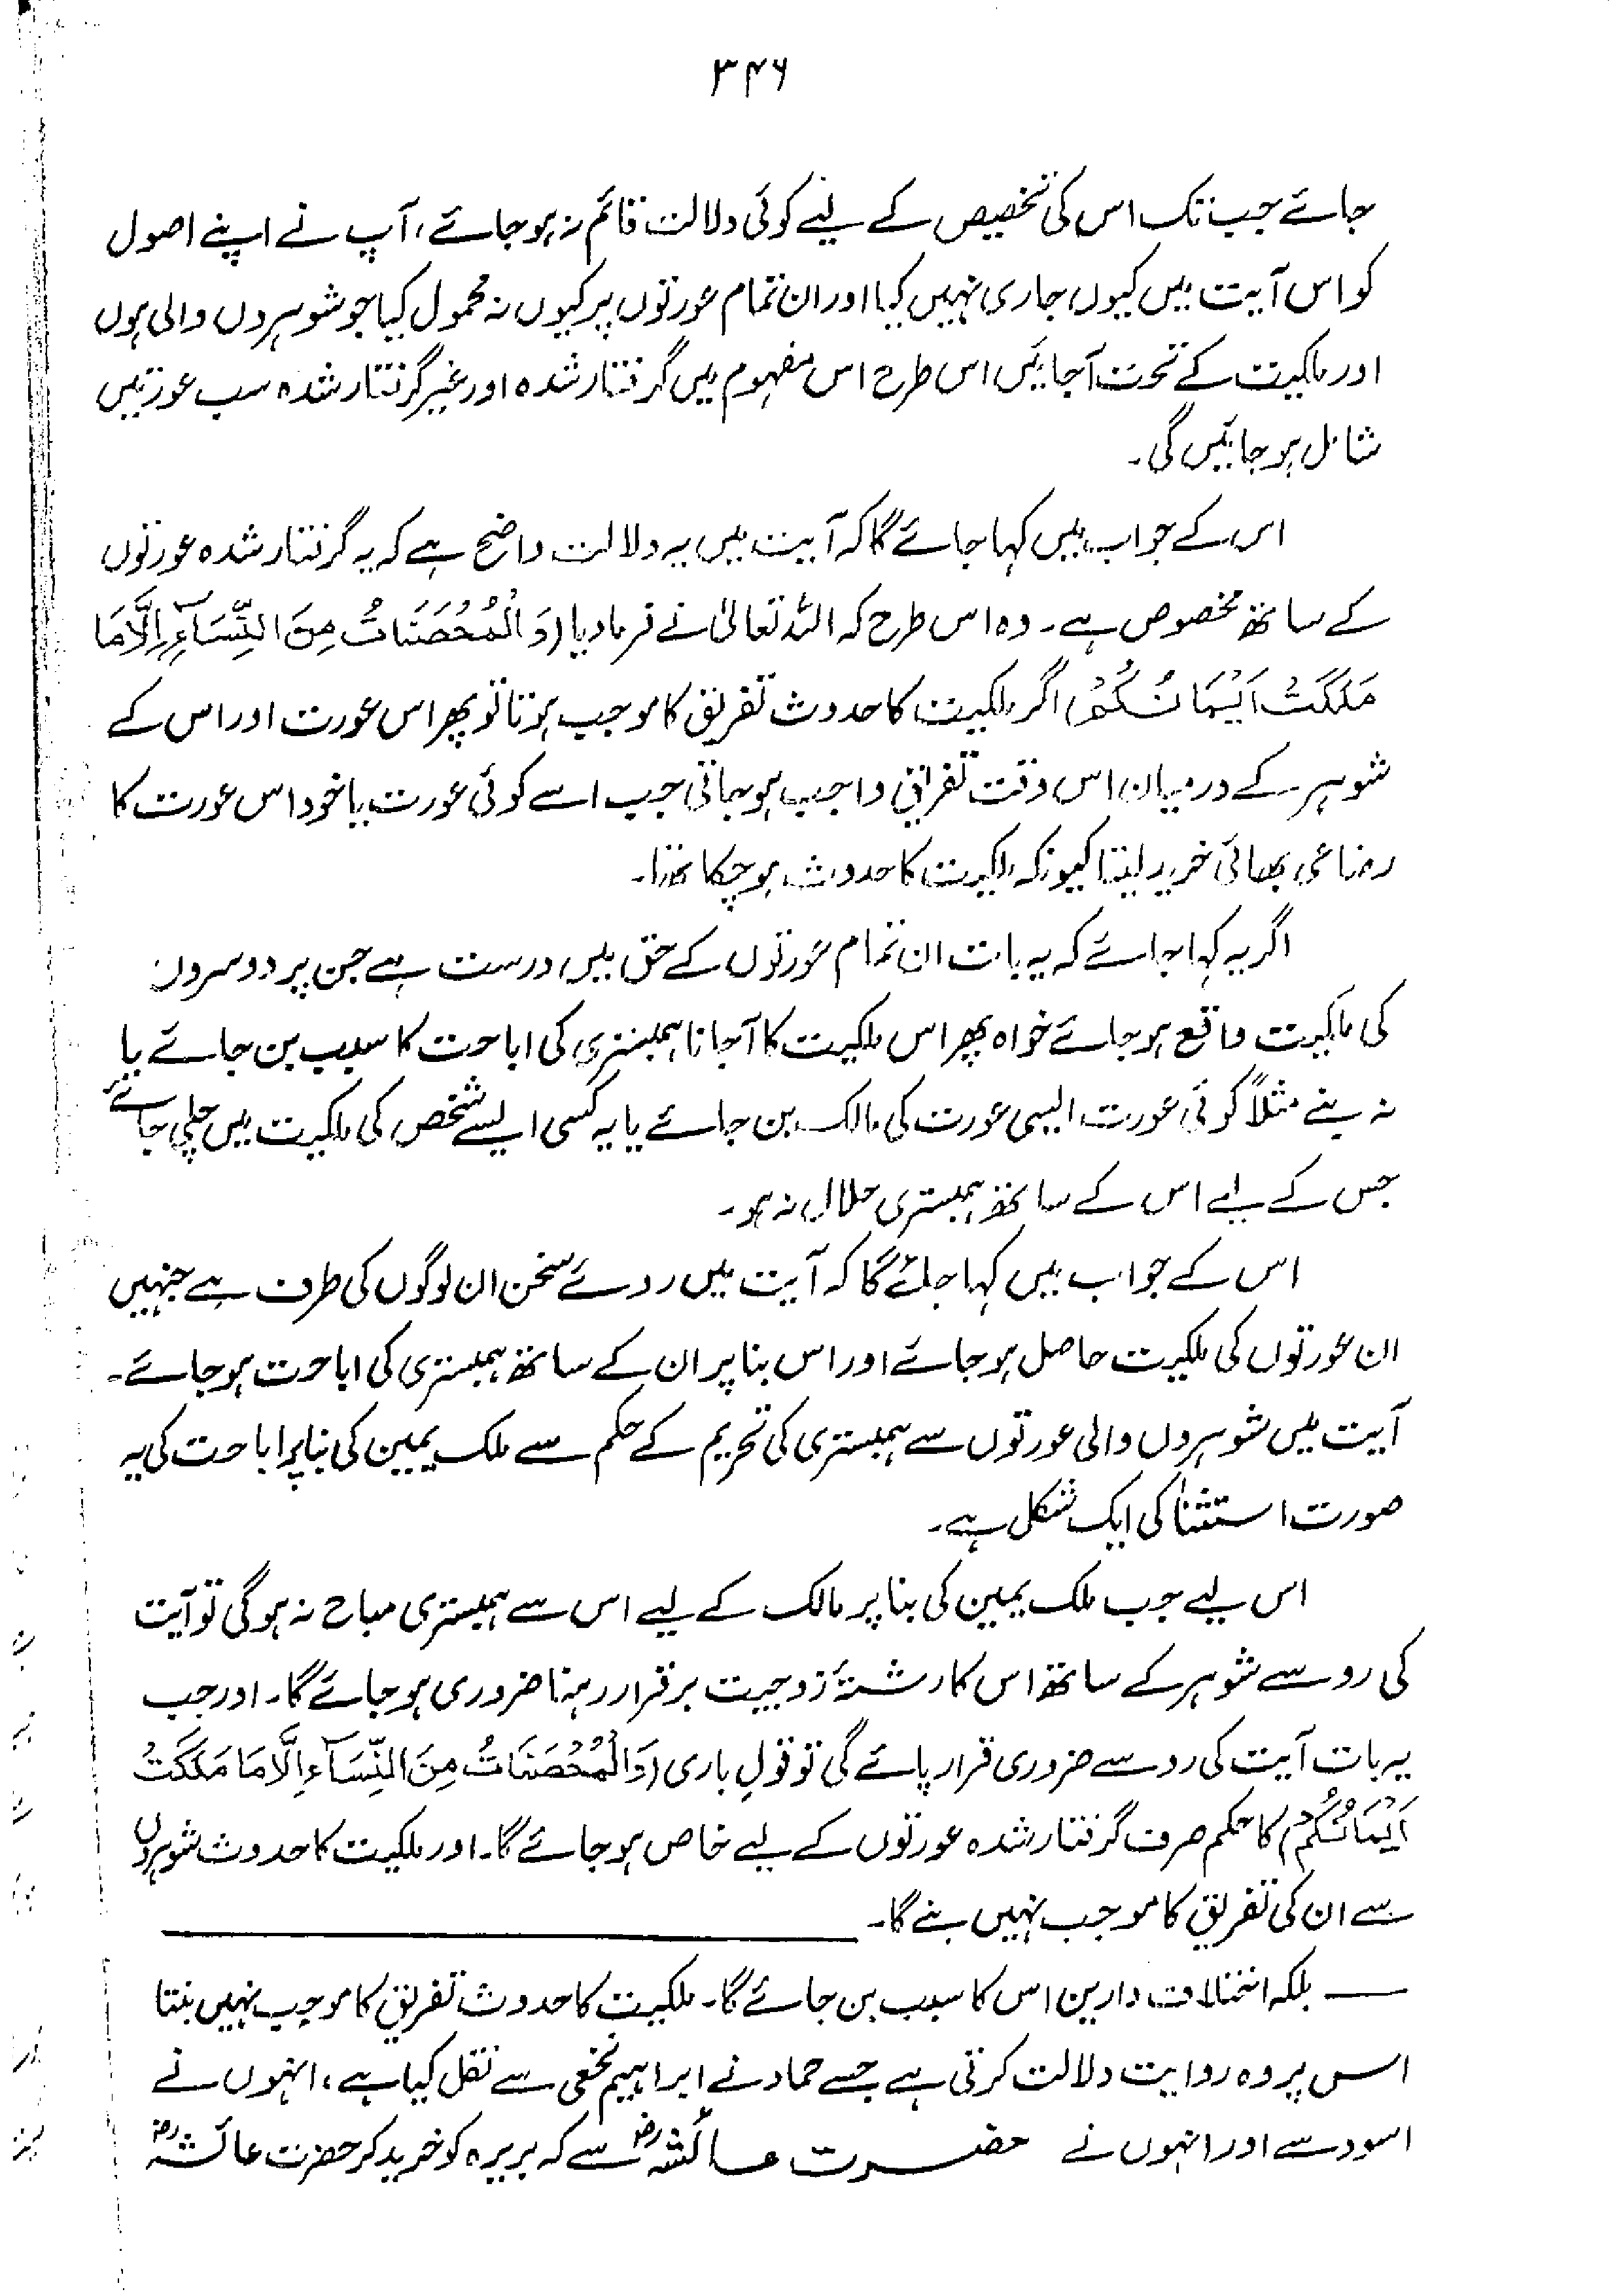 ۳۴۶
جائے جب تک اس کی تخصیص کے لیے کوئی دلالت قائم نہ ہو جائے، آپ نے اپنے اصول
کو اس آیت میں کیوں جاری نہیں کیا اور ان تمام عورتوں پر کیوں نہ محمول کیا جو شوہروں والی ہوں
اور ملکیت کے تحت آجائیں اس طرح اس مفہوم میں گرفتار شدہ اور غیر گرفتار شدہ سب عورتیں
شامل ہو جائیں گی۔
اس کے جواب میں کہا جائے گا کہ آیت میں یہ دلالت واضح ہے کہ یہ گرفتار شدہ عورتوں
کے ساتھ مخصوص ہے۔ وہ اس طرح کہ اللہ تعالیٰ نے فرما دیا (وَالْمُحْصَنَاتُ مِنَ النِّسَآءِ اِلَّا مَا
مَلَكَتْ اَيْمَانُكُمْ) اگر ملکیت کا حدوث تفریق کا موجب ہوتا تو پھر اس عورت اور اس کے
شوہر کے درمیان اس وقت تفریق واجب ہو جاتی جب اسے کوئی عورت یا خود اس عورت کا
رضاعی بھائی خرید لیتا کیونکہ ملکیت کا حدوث ہو چکا تھا۔
اگر یہ کہا جائے کہ یہ بات ان تمام عورتوں کے حق میں درست ہے جن پر دوسروں
کی ملکیت واقع ہو جائے خواہ پھر اس ملکیت کا آجانا ہمبستری کی اباحت کا سبب بن جائے یا
نہ بنے مثلاً کوئی عورت ایسی عورت کی مالک بن جائے یا یہ کسی ایسے شخص کی ملکیت میں چلی جائے
جس کے لیے اس کے ساتھ ہمبستری حلال نہ ہو۔
اس کے جواب میں کہا جائے گا کہ آیت میں روئے سخن ان لوگوں کی طرف ہے جنہیں
ان عورتوں کی ملکیت حاصل ہو جائے اور اس بنا پر ان کے ساتھ ہمبستری کی اباحت ہو جائے۔
آیت میں شوہروں والی عورتوں سے ہمبستری کی تحریم کے حکم سے ملک یمین کی بنا پر اباحت کی یہ
صورت استثنا کی ایک شکل ہے۔
اس لیے جب ملک یمین کی بنا پر مالک کے لیے اس سے ہمبستری مباح نہ ہوگی تو آیت
کی رو سے شوہر کے ساتھ اس کا رشتۂ زوجیت برقرار رہنا ضروری ہو جائے گا۔ اور جب
یہ بات آیت کی رو سے ضروری قرار پائے گی تو قولِ باری (وَالْمُحْصَنَاتُ مِنَ النِّسَآءِ اِلَّا مَا مَلَكَتْ
اَيْمَانُكُمْ) کا حکم صرف گرفتار شدہ عورتوں کے لیے خاص ہو جائے گا۔ اور ملکیت کا حدوث شوہروں
سے ان کی تفریق کا موجب نہیں بنے گا۔
— بلکہ اختلاف دارین اس کا سبب بن جائے گا۔ ملکیت کا حدوث تفریق کا موجب نہیں بنتا
اس پر وہ روایت دلالت کرتی ہے جسے حماد نے ابراہیم نخعی سے نقل کیا ہے، انہوں نے
اسود سے اور انہوں نے حضرت عائشہؓ سے کہ بریرہ کو خرید کر حضرت عائشہؓ